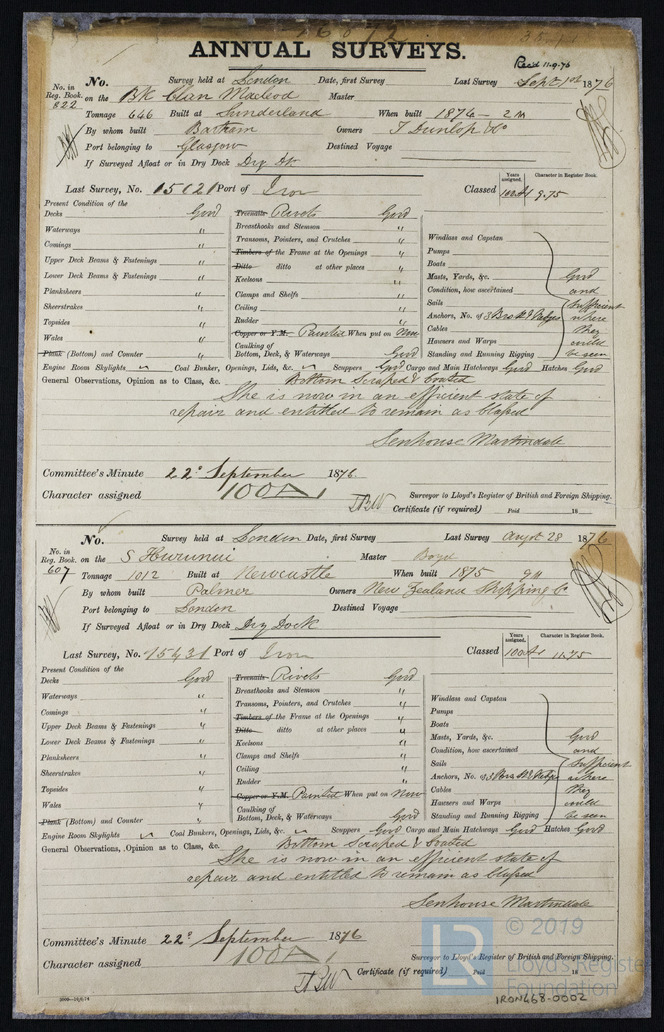 16072
ANNUAL SURVEYS.
Recd 11.9.76
No. Survey held at London Date, first Survey Last Survey Sept 1st 1876
No. in Reg. Book. 822 on the Bk Clan Macleod Master
Tonnage 646 Built at Sunderland When built 1874 - 2 m
By whom built Bartram Owners T Dunlop & Co
Port belonging to Glasgow Destined Voyage
If Surveyed Afloat or in Dry Dock Dry Dk
Last Survey, No. 15621 Port of Iron Classed Years assigned. 100A1 Character in Register Book. 9.75
Present Condition of the
Decks Good Treenails Rivets Good
Waterways " Breasthooks and Stemson " Windlass and Capstan
Comings " Transoms, Pointers, and Crutches " Pumps
Upper Deck Beams & Fastenings " Timbers of the Frame at the Openings " Boats
Lower Deck Beams & Fastenings " Ditto ditto at other places " Masts, Yards, &c. Good
Keelsons " Condition, how ascertained and
Planksheers " Clamps and Shelfs " Sails sufficient
Sheerstrakes " Ceiling " Anchors, No. of where
Topsides " Rudder " Cables they
Wales " Copper or Y.M. Painted When put on Now Hawsers and Warps could
Plank (Bottom) and Counter " Caulking of Bottom, Deck, & Waterways Good Standing and Running Rigging be seen
Engine Room Skylights " Coal Bunker, Openings, Lids, &c. " Scuppers Good Cargo and Main Hatchways Good Hatches Good
General Observations, Opinion as to Class, &c. Bottom Scraped & Coated
She is now in an efficient state of
repair and entitled to remain as classed
Senhouse Martindale
Committee's Minute 22d September 1876.
Character assigned 100A1 Surveyor to Lloyd's Register of British and Foreign Shipping.
Certificate (if required) Paid 18
No. Survey held at London Date, first Survey Last Survey Augst 28 1876
No. in Reg. Book. 607 on the S Hurunui Master Boyd
Tonnage 1012 Built at Newcastle When built 1875 9 m
By whom built Palmer Owners New Zealand Shipping Co
Port belonging to London Destined Voyage
If Surveyed Afloat or in Dry Dock Dry Dock
Last Survey, No. 15431 Port of Iron Classed Years assigned. 100A1 Character in Register Book. 11.75
Present Condition of the
Decks Good Treenails Rivets Good
Waterways " Breasthooks and Stemson " Windlass and Capstan
Comings " Transoms, Pointers, and Crutches " Pumps
Upper Deck Beams & Fastenings " Timbers of the Frame at the Openings " Boats
Lower Deck Beams & Fastenings " Ditto ditto at other places " Masts, Yards, &c. Good
Keelsons " Condition, how ascertained and
Planksheers " Clamps and Shelfs " Sails sufficient
Sheerstrakes " Ceiling " Anchors, No. of where
Topsides " Rudder " Cables they
Wales " Copper or Y.M. Painted When put on Now Hawsers and Warps could
Plank (Bottom) and Counter " Caulking of Bottom, Deck, & Waterways Good Standing and Running Rigging be seen
Engine Room Skylights " Coal Bunkers, Openings, Lids, &c. " Scuppers Good Cargo and Main Hatchways Good Hatches Good
General Observations, Opinion as to Class, &c. Bottom Scraped & Coated
She is now in an efficient state of
repair and entitled to remain as classed
Senhouse Martindale
Committee's Minute 22d September 1876
Character assigned 100A1 Surveyor to Lloyd's Register of British and Foreign Shipping.
Certificate (if required) Paid 18
© 2019
LR Lloyd's Register
Foundation
IRON468-0002